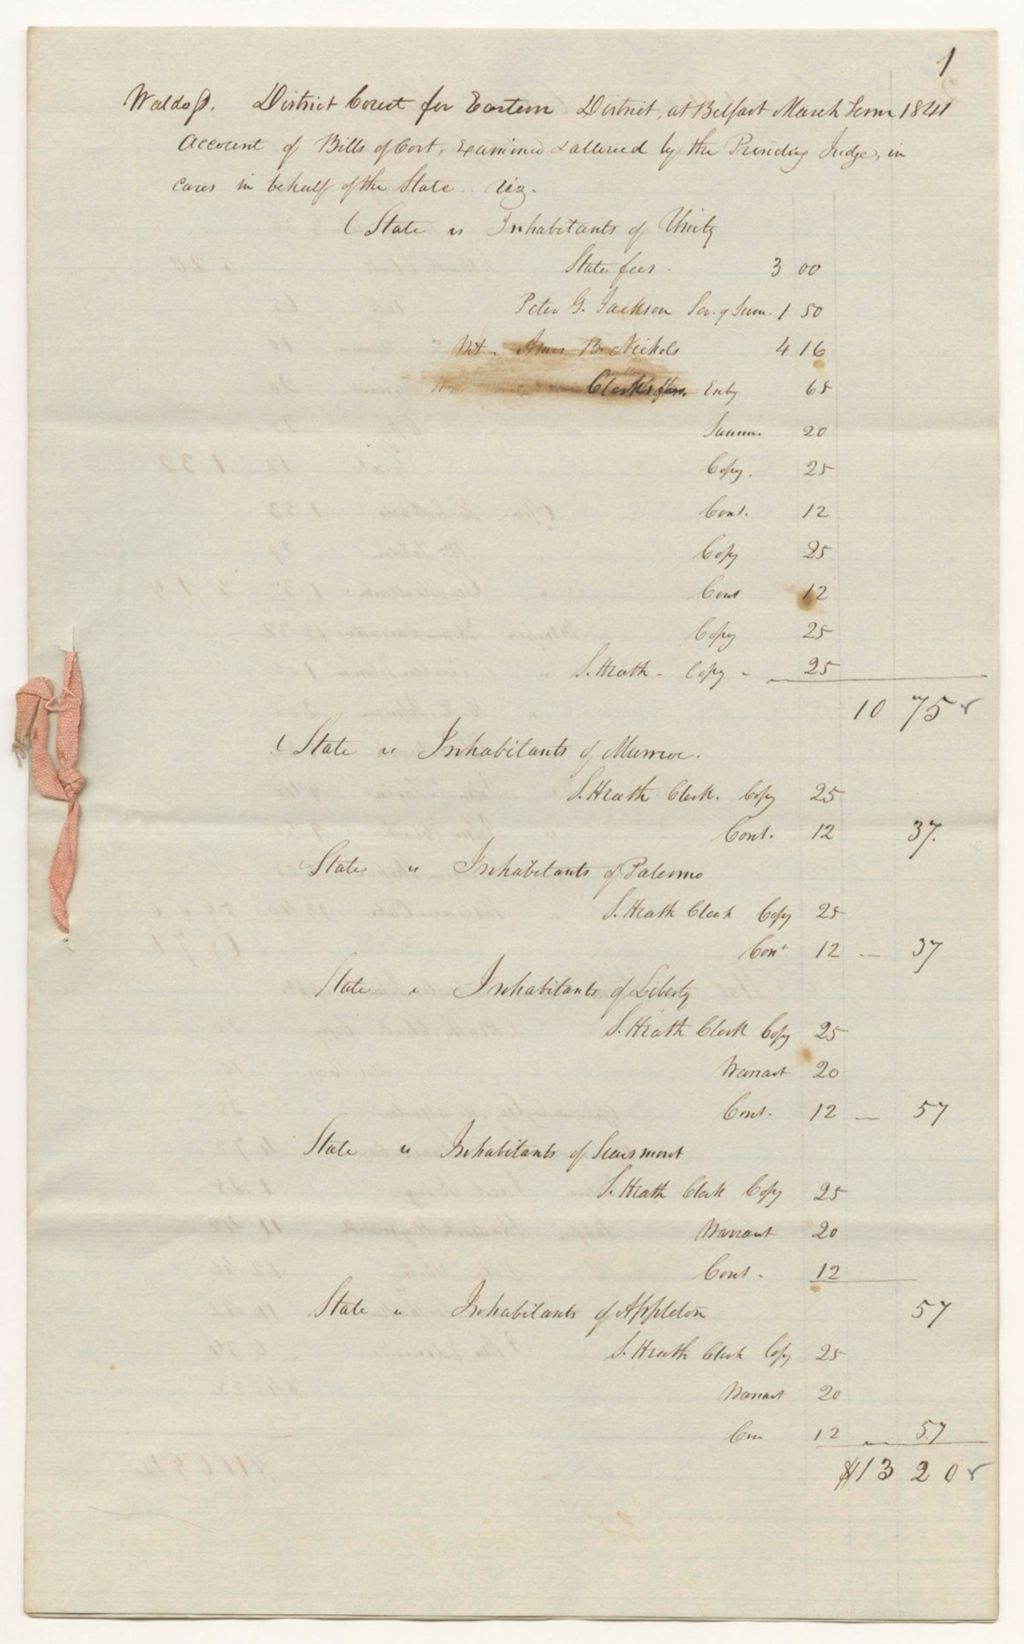 1
Waldo ss. District Court for Eastern District, at Belfast March Term 1841
Account of Bills of Cost, Examined & allowed by the Presiding Judge, in
cases in behalf of the State. viz.
( State vs Inhabitants of Unity
State fees. 3 00
Peter G. Jackson Ser. of Sum. 1 50
Wit. Amos B. Nickels 4 16
Clerk's fees. Enty 65
Summs. 20
Copy. 25
Cont. 12
Copy 25
Cont 12
Copy 25
S. Heath - Copy - 25
10 75
( State vs Inhabitants of Munroe.
S. Heath Clerk. Copy 25
Cont. 12 37.
State vs Inhabitants of Palermo
S. Heath Clerk Copy 25
Cont 12 — 37
State vs Inhabitants of Liberty
S. Heath Clerk Copy 25
Warrant 20
Cont. 12 — 57
State vs Inhabitants of Searsmont
S. Heath Clerk Copy 25
Warrant 20
Cont. 12
57
State vs Inhabitants of Appleton
S. Heath Clerk Copy 25
Warrant 20
Con 12 — 57
$13 20